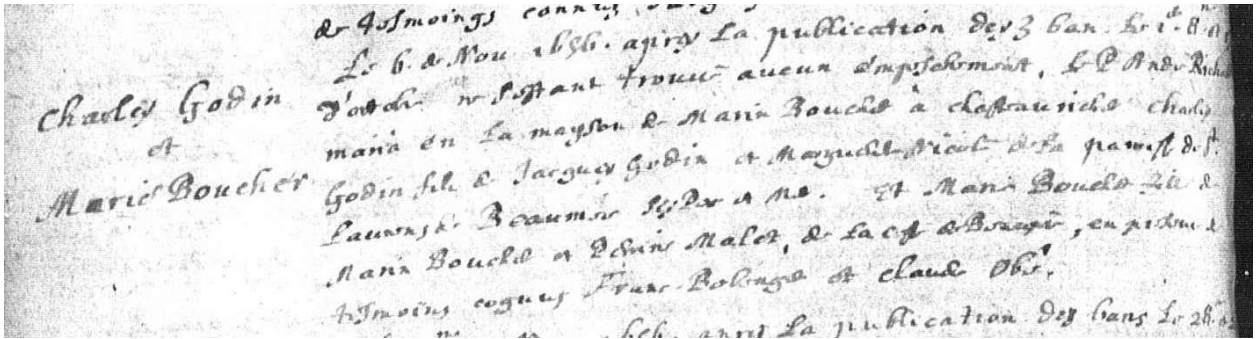 Charles Godin
et
Marie Boucher
de tesmoings connus
Le 6. de Nou. 1656. apres La publication des 3 ban. Le 1.
d'octobre ne s'estant trouué aucun empeschement, Le P. André Richard
maria en La mayson de Marin Bouché à chasteauriché charles
Godin fils de Jacques Godin et Marguerite Nicole de la paroisse de St.
Laurens de Beaumé ses Per et Me. Et Marie Bouché fille de
Marin Bouché et Perine Malet, de La coste de Beaupré, en presence de
tesmoins cognus Franc. Belenger et claude
apres La publication des bans Le 28.